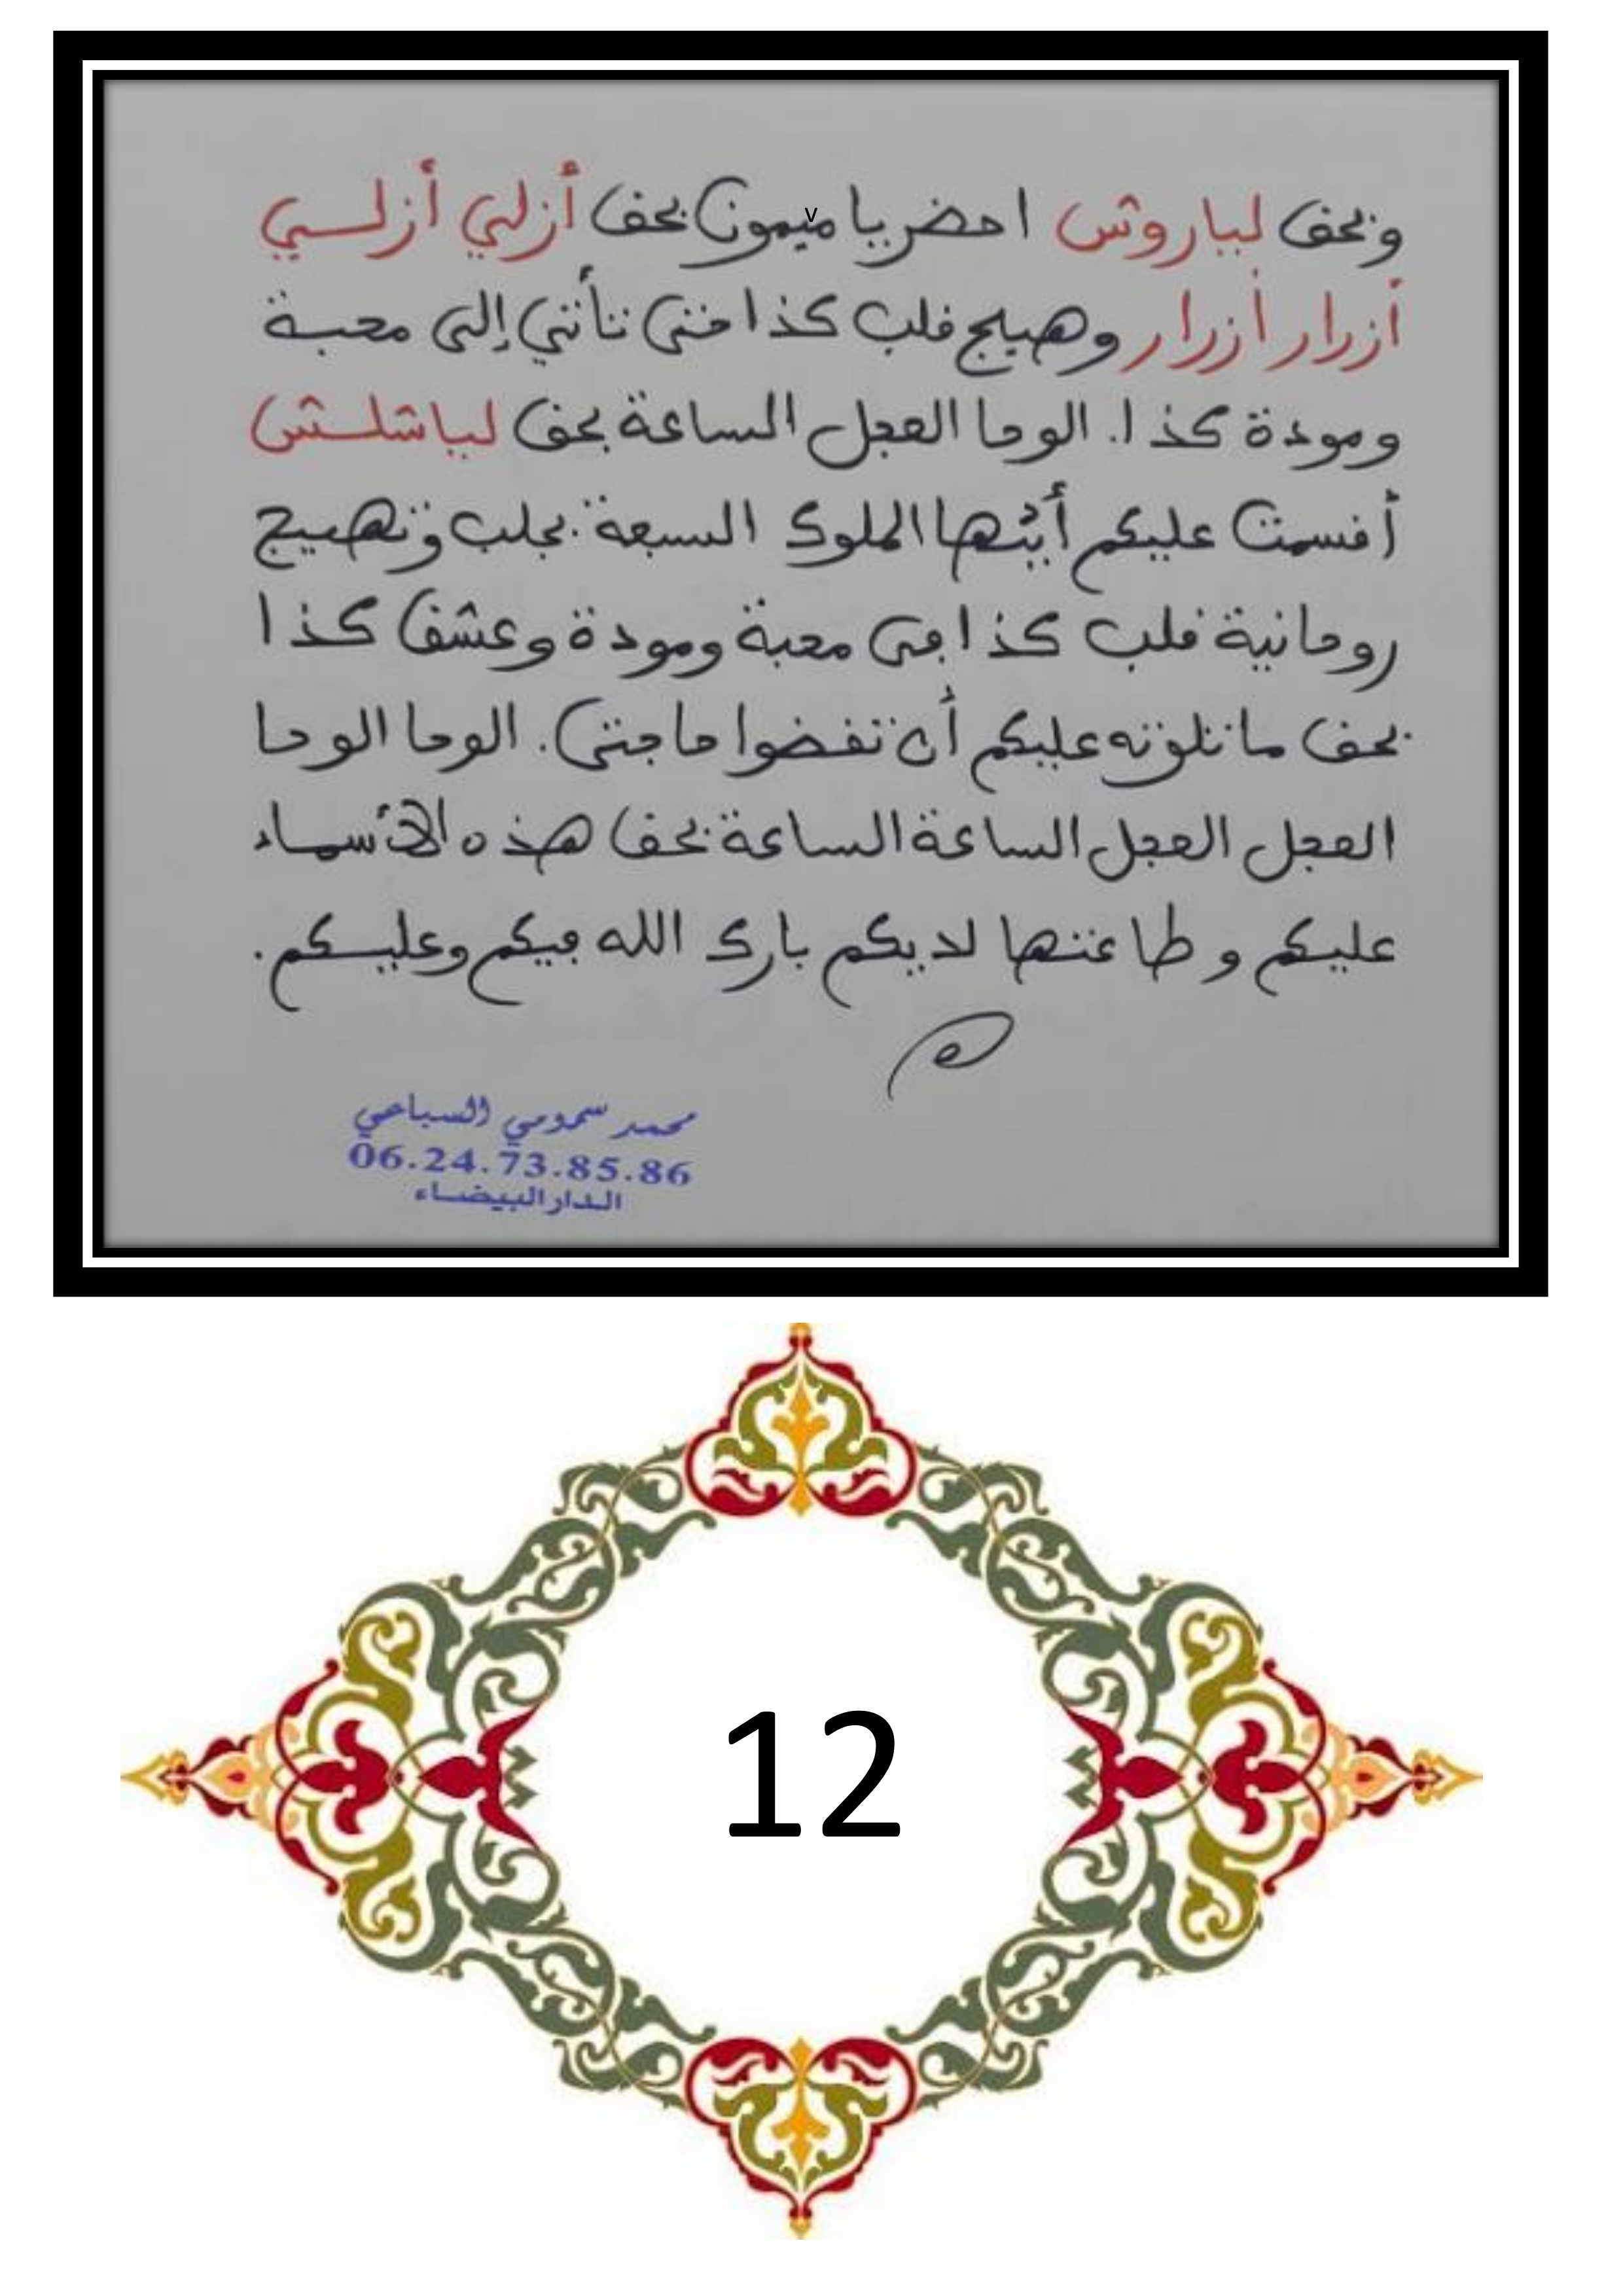 وبحق لباروش احضر يا ميمون بحق أزلي أزلي
v
أزرار أزرار وهيج قلب كذا حتى تأتي إلى محبة
ومودة كذا. الوحا العجل الساعة بحق لباشلش
أقسمت عليكم أيتها الملوك السبعة بجلب وتهييج
روحانية قلب كذا في محبة ومودة وعشق كذا
بحق ما تلوته عليكم أن تقضوا حاجتي. الوحا الوحا
العجل العجل الساعة الساعة بحق هذه الأسماء
عليكم وطاعتها لديكم بارك الله فيكم وعليكم.
محمد سمومي السباعي
06.24.73.85.86
الدار البيضاء
12